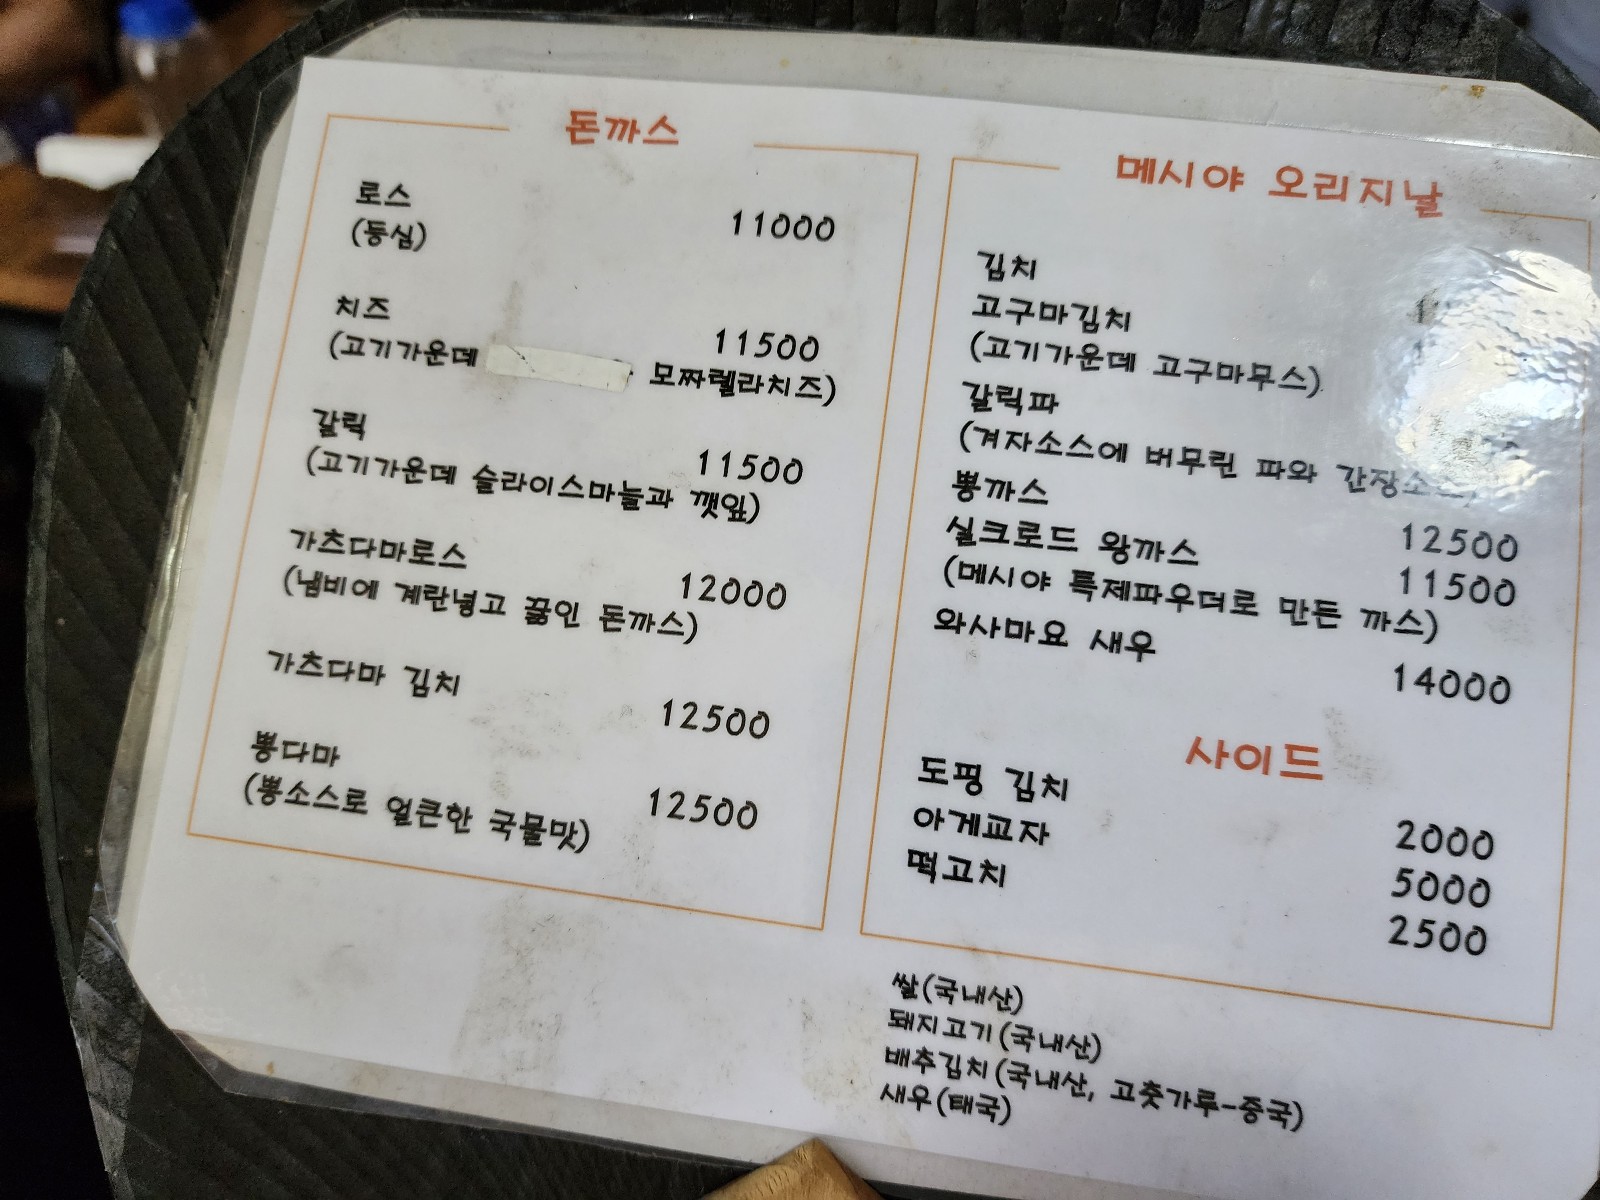 돈까스
로스
(등심)
11000
치즈
11500
(고기가운데 모짜렐라치즈)
갈릭
11500
(고기가운데 슬라이스마늘과 깻잎)
가츠다마로스
12000
(냄비에 계란넣고 끓인 돈까스)
가츠다마 김치
12500
뽕다마
12500
(뽕소스로 얼큰한 국물맛)
메시야 오리지날
김치
고구마김치
(고기가운데 고구마무스)
갈릭파
(겨자소스에 버무린 파와 간장소스)
뽕까스 12500
실크로드 왕까스 11500
(메시야 특제파우더로 만든 까스)
와사마요 새우 14000
사이드
도핑 김치 2000
아게교자 5000
떡고치 2500
쌀(국내산)
돼지고기(국내산)
배추김치(국내산, 고춧가루-중국)
새우(태국)